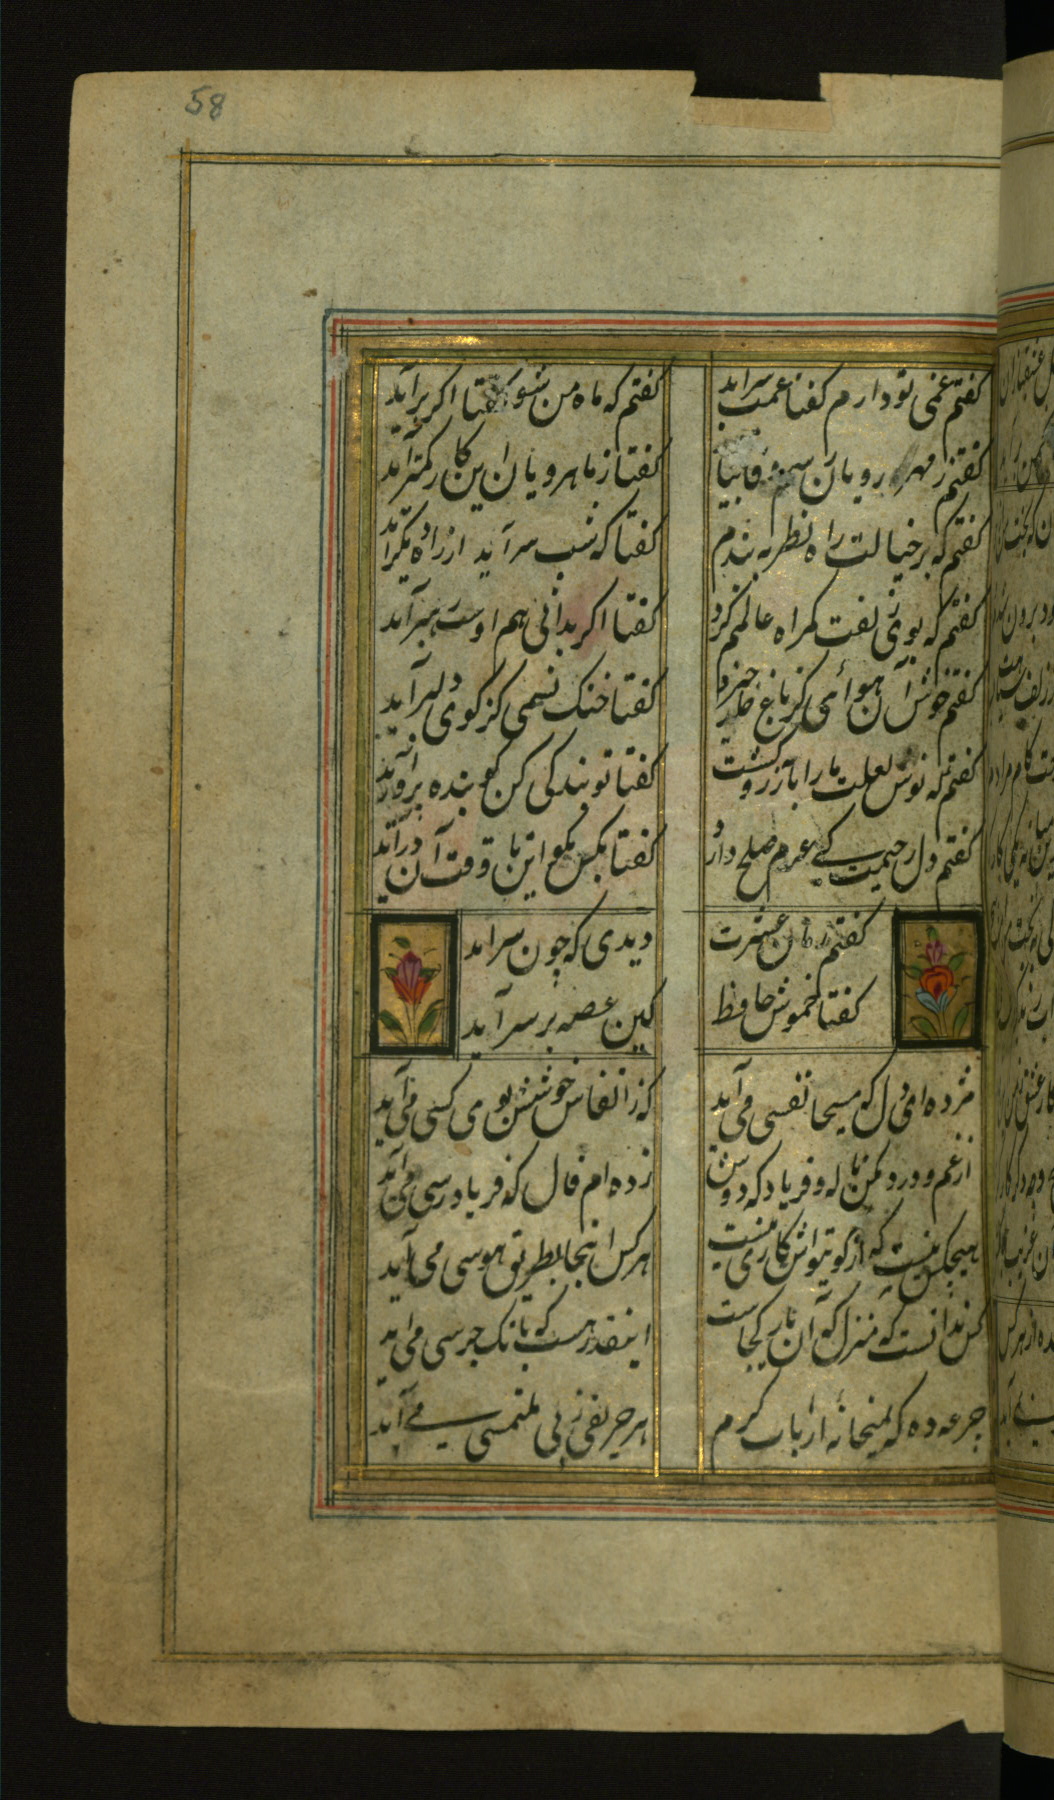 58
گفتم غمی تو دارم گفتا غمت سر آید
گفتم که ماه من شو گفتا اگر بر آید
گفتم ز مهر رویان رسم وفا بیا
گفتا ز ماهرویان این کار کمتر آید
گفتم که بر خیالت راه نظر به بندم
گفتا که شب
گفتم که بوی زلفت گمراه عالمم کرد
گفتا اگر بدانی هم اوت رهبر آید
گفتم خوش آن هوائی کز باغ خلد خیزد
گفتا خنک نسیمی کز کوی دلبر آید
گفتم که نوش لعلت ما را بآرزو کشت
گفتا تو بندگی کن کو بنده پرور آید
گفتم دل رحیمت کی عزم صلح دارد
گفتا تا وقت آن در آید
گفتم زمان عشرت
دیدی که چون سر آمد
گفتا خموش حافظ
کین غصه بر سر آید
مژده ای دل که مسیحا نفسی می آید
که ز انفاس خوشش بوی کسی می آید
از غم و درد مکن ناله و فریاد که دوش
زده ام فال که فریاد رسی می آید
هیچکس نیست که در کوی تواش کاری نیست
هر کس اینجا بطریق هوسی می آید
کس ندانست که منزلگه آن یار کجاست
اینقدر هست که بانک جرسی می آید
جرعه ده که بمیخانه ارباب کرم
هر حریفی ز پی ملتمسی می آید